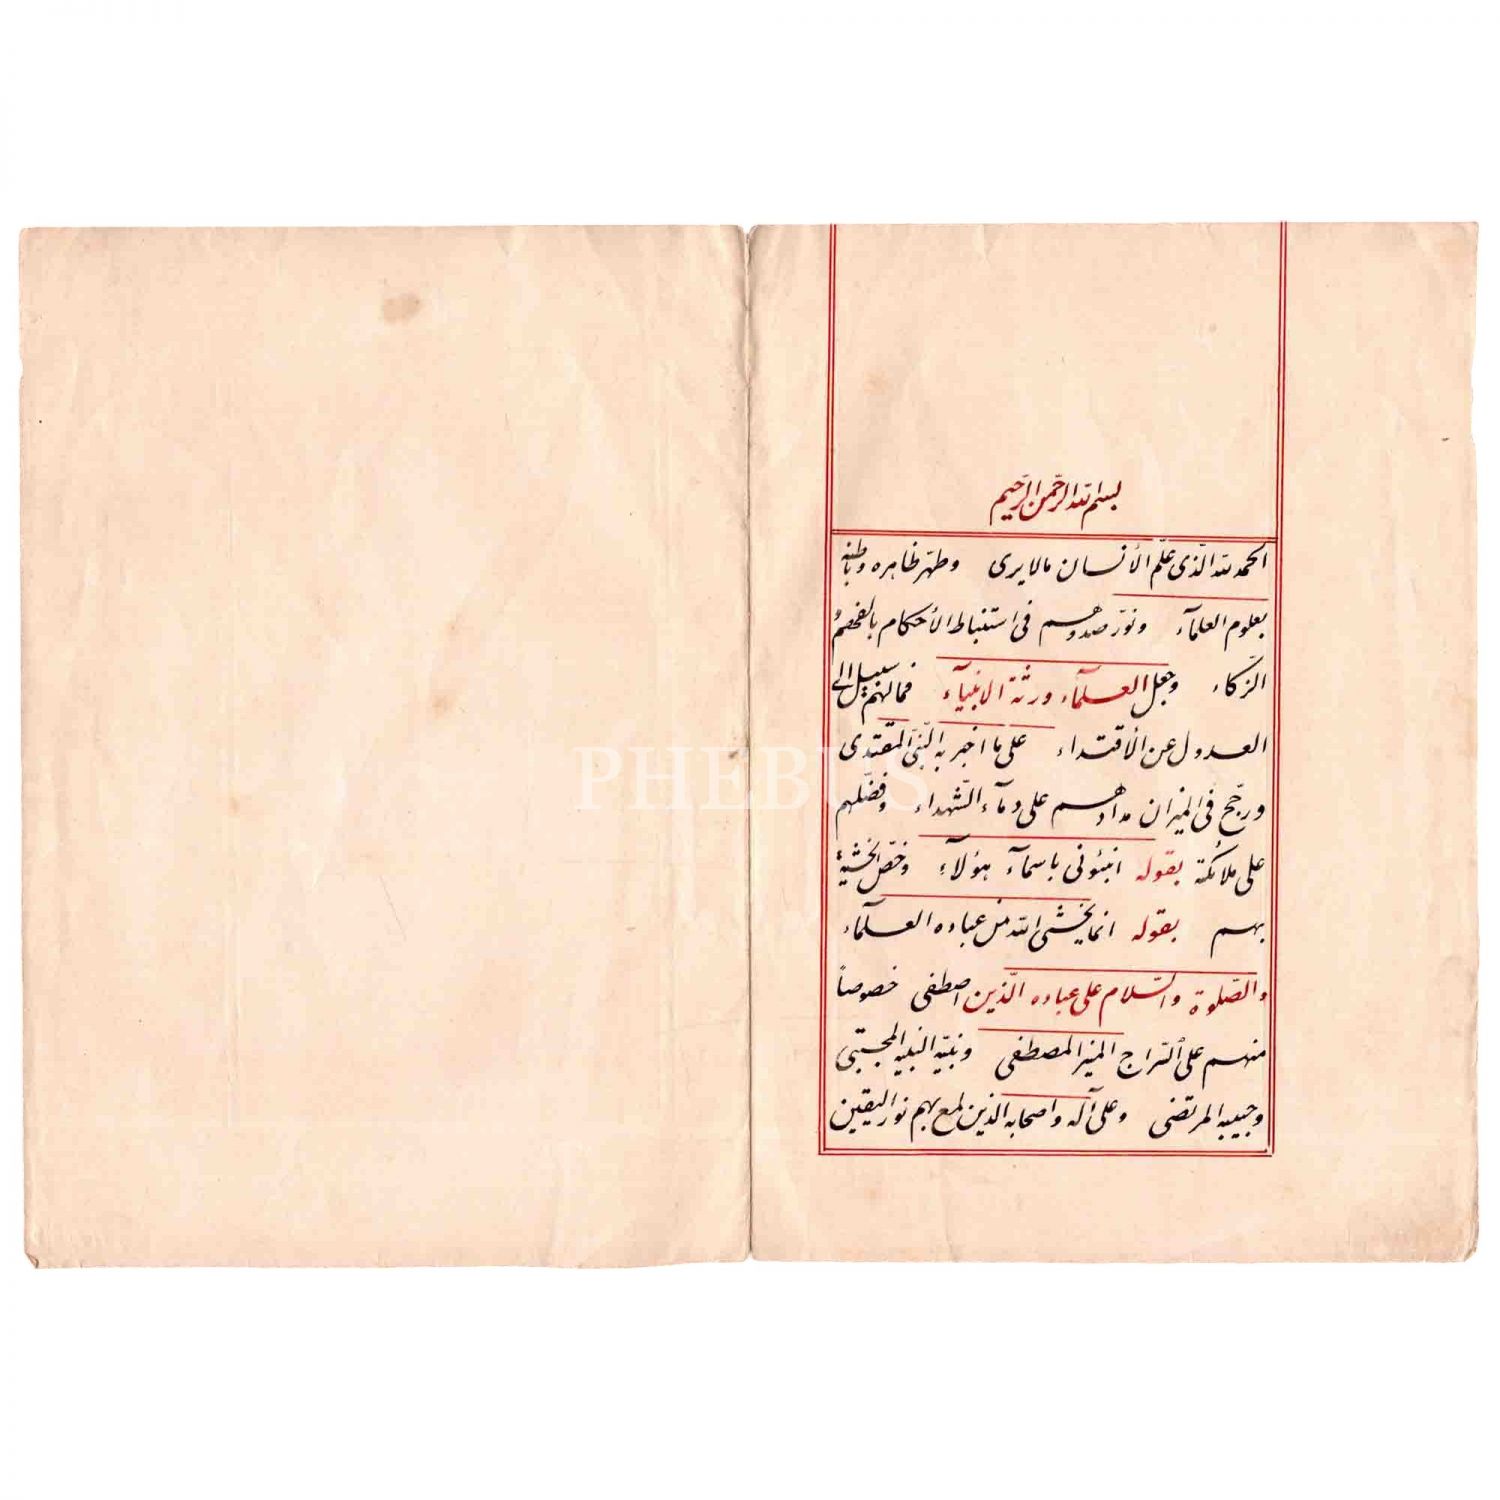 بسم الله الرّحمن الرّحيم
الحمد لله الّذى علّم الأنسان مالايرى وطهّر ظاهره وباطنه
بعلوم العلمآء ونوّر صدورهم فى استنباط الأحكام بالفحص و
الزّكاء وجعل العلمآء ورثة الانبيآء فمالهم سبيل الى
العدول عن الأقتداء على ما اخبر به النّبى المقتدى
ورجّح فى الميزان مدادهم على دمآء الشّهداء وفضّلهم
على ملائكته بقوله انبئونى باسمآء هؤلآء وخصّ الخشية
بهم بقوله انما يخشى الله من عباده العلمآء
والصّلوة والسّلام على عباده الّذين اصطفى خصوصاً
منهم على السّراج المنير المصطفى ونبيّه النبيه المجتبى
وحبيبه المرتضى وعلى آله واصحابه الذين لمع بهم نور اليقين
PHEBUS